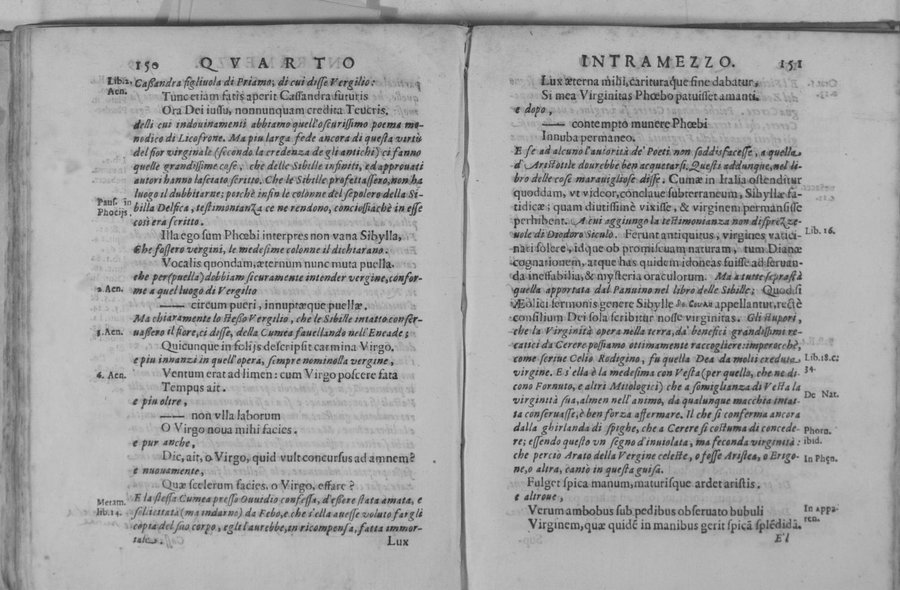 150 QVARTO
Lib. 2. Aen.
Cassandra figliuola di Priamo, di cui disse Vergilio:
Tunc etiam fatis aperit Cassandra futuris
Ora Dei iussu, non nunquam credita Teucris.
delli cui indouinamenti abbiamo quell'oscurissimo poema mo-
nodico di Licofrone. Ma piu larga fede ancora di questa virtù
del fior virginale (secondo la credenza de gli antichi) ci fanno
quelle grandissime cose, che delle Sibille infiniti, ed approuati
autori hanno lasciato scritto. Che le Sibille profetassero, non ha
luogo il dubbitarne; poiche insin le colonne del sepolcro della Si-
Paus. in Phocijs.
billa Delfica, testimonianza ce ne rendono, conciossiachè in esse
così era scritto.
Illa ego sum Phœbi interpres non vana Sibylla,
Che fossero vergini, le medesime colonne il dichiarano.
Vocalis quondam, æternum nunc muta puella.
che per (puella) dobbiam sicuramente intender vergine, confor-
2. Aen.
me a quel luogo di Vergilio
—— circum pueri, innuptæque puellæ.
Ma chiaramente lo stesso Vergilio, che le Sibille intatto conser-
3. Aen.
uassero il fiore, ci disse, della Cumea fauellando nell'Eneade;
Quicunque in folijs descripsit carmina Virgo.
e piu innanzi in quell'opera, sempre nominolla vergine.
6. Aen.
Ventum erat ad limen: cum Virgo poscere fata
Tempus ait.
e piu oltre,
—— non vlla laborum
O Virgo noua mihi facies.
e pur anche,
Dic, ait, o Virgo, quid vult concursus ad amnem?
e nuouamente,
Quæ scelerum facies, o Virgo, effare?
Metam. lib. 14.
E la stessa Cumea presso Ouuidio confessa, d'essere stata amata, e
sollicitata (ma indarno) da Febo, e che s'ella auesse voluto far gli
copia del suo corpo, egli l'aurebbe, in ricompensa, fatta immor-
tale.
Lux
INTRAMEZZO. 151
Lux æterna mihi, carituraque fine dabatur,
Si mea Virginitas Phœbo patuisset amanti.
e dopo,
—— contempto munere Phœbi
Innuba permaneo.
E se ad alcuno l'autorità de' Poeti non soddisfacesse, a quella
d'Aristotile dourebbe ben acquetarsi. Questi addunque, nel li-
bro delle cose marauigliose disse. Cumæ in Italia ostenditur
quoddam, vt videor, conclaue subterraneum, Sibyllæ fa-
tidicæ; quam diutissime vixisse, & virginem permansisse
perhibent. A cui aggiungo la testimonianza non disprezze-
Lib. 16.
uole di Diodoro Siculo. Ferunt antiquitus, virgines vatici-
nati solere, idque ob promiscuam naturam, tum Dianæ
cognationem, atque has quidem idoneas fuisse ad seruan-
da ineffabilia, & mysteria oraculorum. Ma a tutte soprasta
quella apportata dal Panuino nel libro delle Sibille; Quod si
Æolici sermonis genere Sibyllæ appellantur, rectè
consilium Dei sola scribitur nosse virginitas. Gli stupori,
che la Virginità opera nella terra, da' benefici grandissimi re-
catici da Cerere possiamo ottimamente raccogliere: imperocchè,
Lib. 18. c. 34.
come scriue Celio Rodigino, fu quella Dea da molti creduta
virgine. E s'ella è la medesima con Vesta (per quello, che ne di-
cono Fornuto, e altri Mitologici) che a somiglianza di Vesta la
De Nat.
virginità sua, almen nell'animo, da qualunque macchia intat-
ta conseruasse, è ben forza affermare. Il che si conferma ancora
dalla ghirlanda di spighe, che a Cerere si costuma di concede-
Phorn. ibid.
re; essendo questo vn segno d'inuiolata, ma feconda virginità:
che perciò Arato della Vergine celeste, o fosse Aristea, o Erigo-
In Phęn.
ne, o altra, cantò in questa guisa.
Fulget spica manu, maturisque ardet aristis.
e altroue,
In apparen.
Verum ambobus sub pedibus obseruato bubuli
Virginem, quæ quidẽ in manibus gerit spicã splẽdidã.
E'l